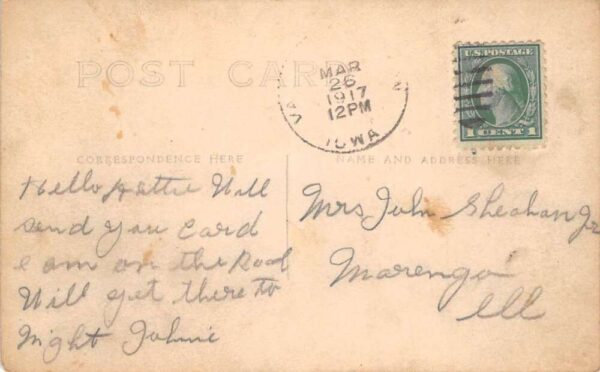 POST CARD
MAR
26
1917
12PM
VA
IOWA
2
U.S. POSTAGE
1 CENT 1
CORRESPONDENCE HERE
NAME AND ADDRESS HERE
Hello Hattie Will
send you Card
e am on the Road
Will get there to
Night Johnie
Mrs John Sheahan Jr
Marengo
Ill